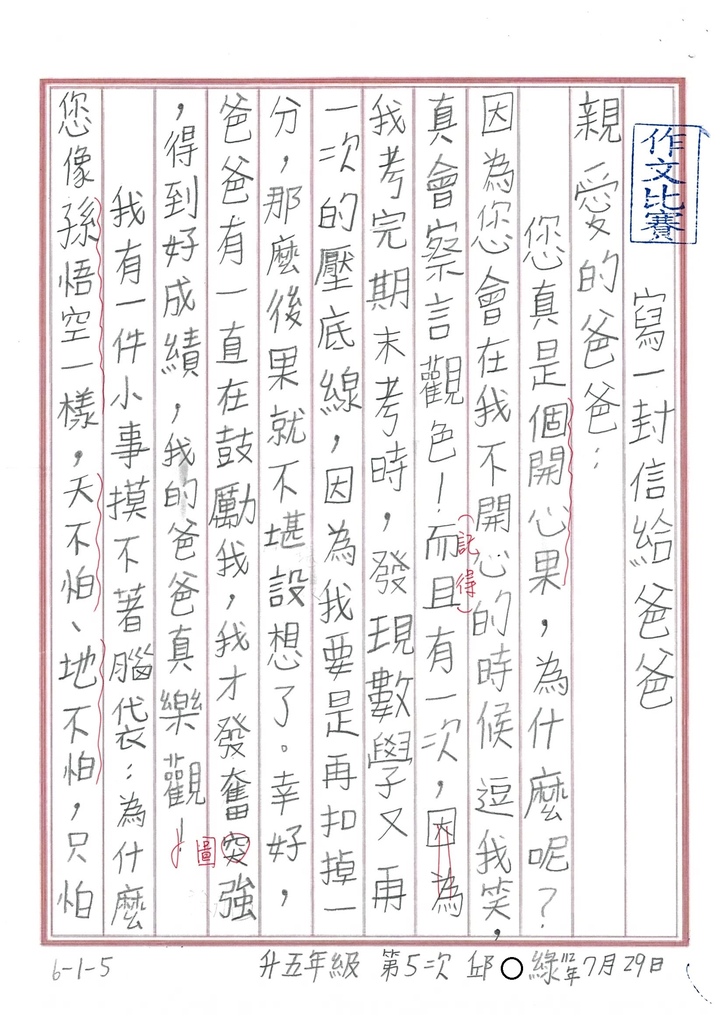 作文比賽
寫一封信給爸爸
親愛的爸爸：
您真是個開心果，為什麼呢？
因為您會在我不開心的時候逗我笑，
真會察言觀色！而且有一次，因為
（記得）
我考完期末考時，發現數學又再
一次的壓底線，因為我要是再扣掉一
分，那麼後果就不堪設想了。幸好，
爸爸有一直在鼓勵我，我才發奮突強
圖
，得到好成績，我的爸爸真樂觀！
我有一件小事摸不著腦袋：為什麼
您像孫悟空一樣，天不怕、地不怕，只怕
6-1-5 升五年級 第5次 邱○綠 112年7月29日